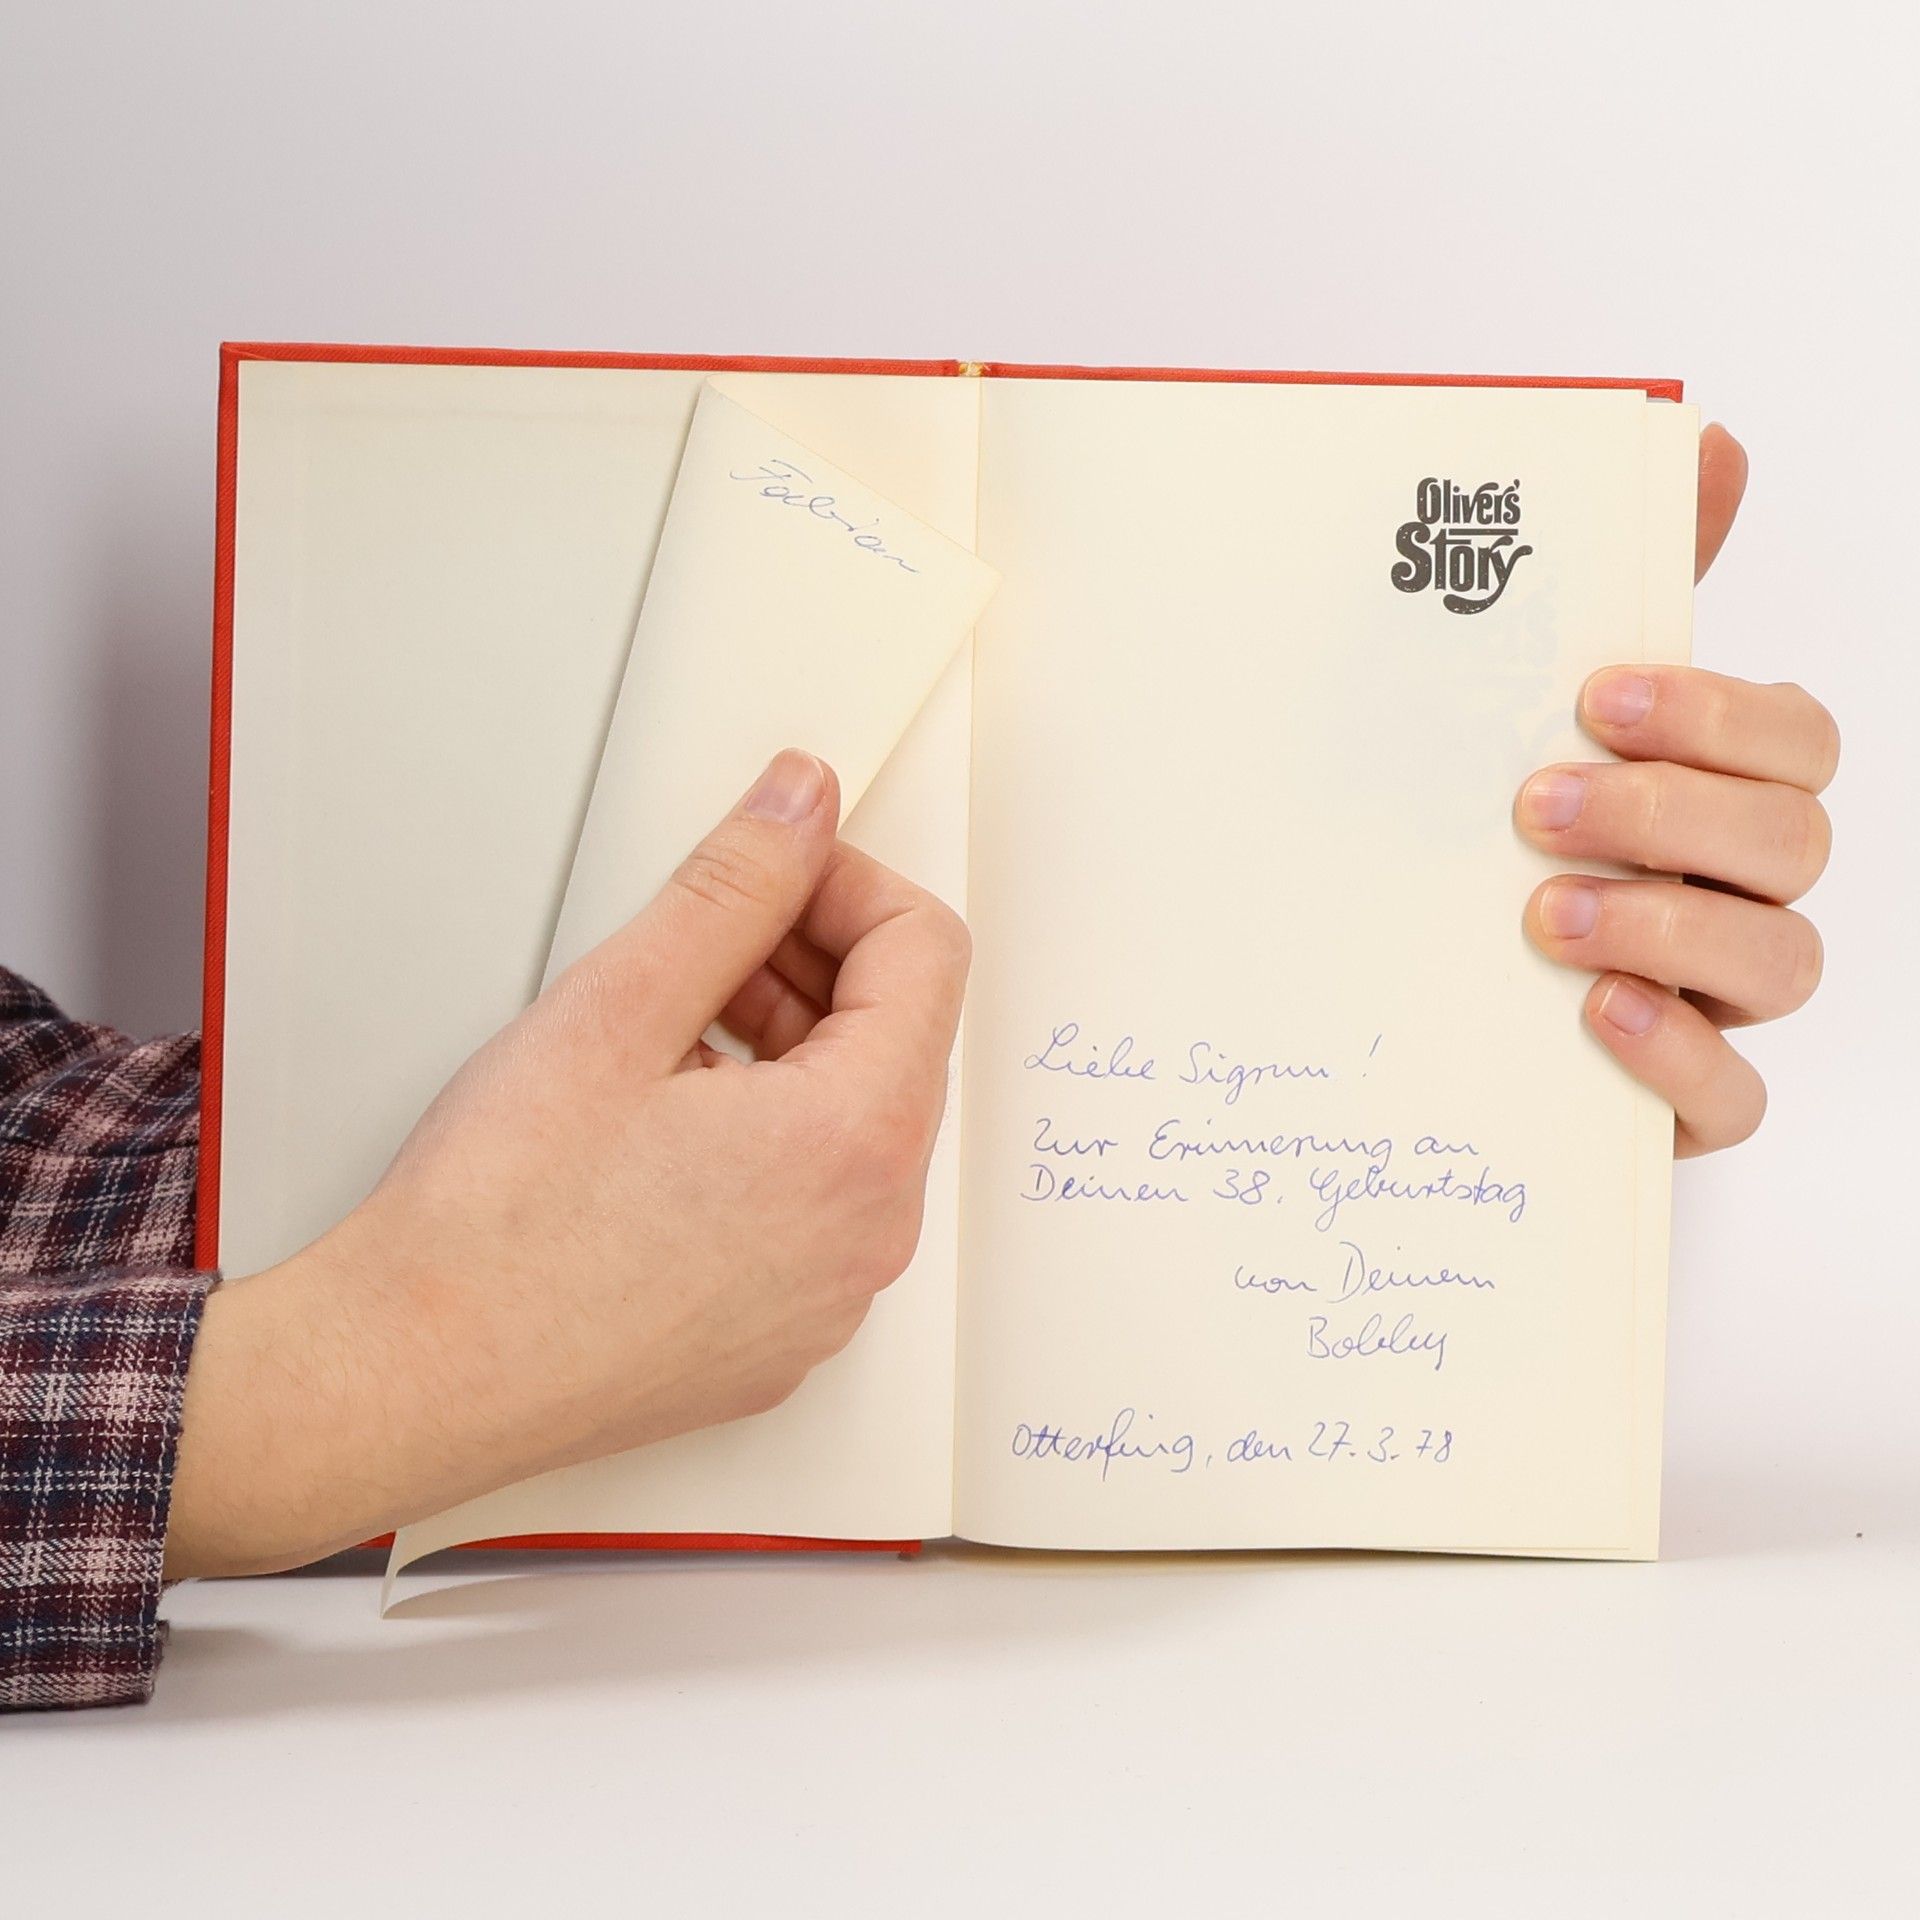 Fabian
Olivers'
Story
Liebe Sigrun!
Zur Erinnerung an
Deinen 38. Geburtstag
von Deinem
Bobby
Otterfing, den 27.3.78